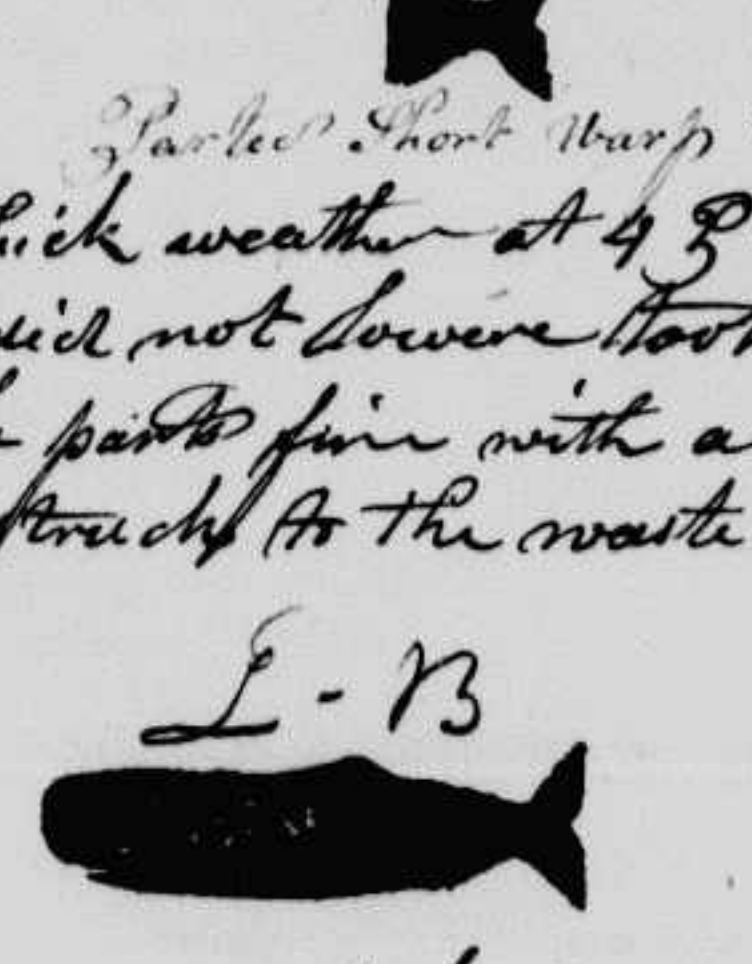 Parted Short Warp
hick weather at 4 P
did not Lowere took
parts fine with a
struck to the waste
L - B